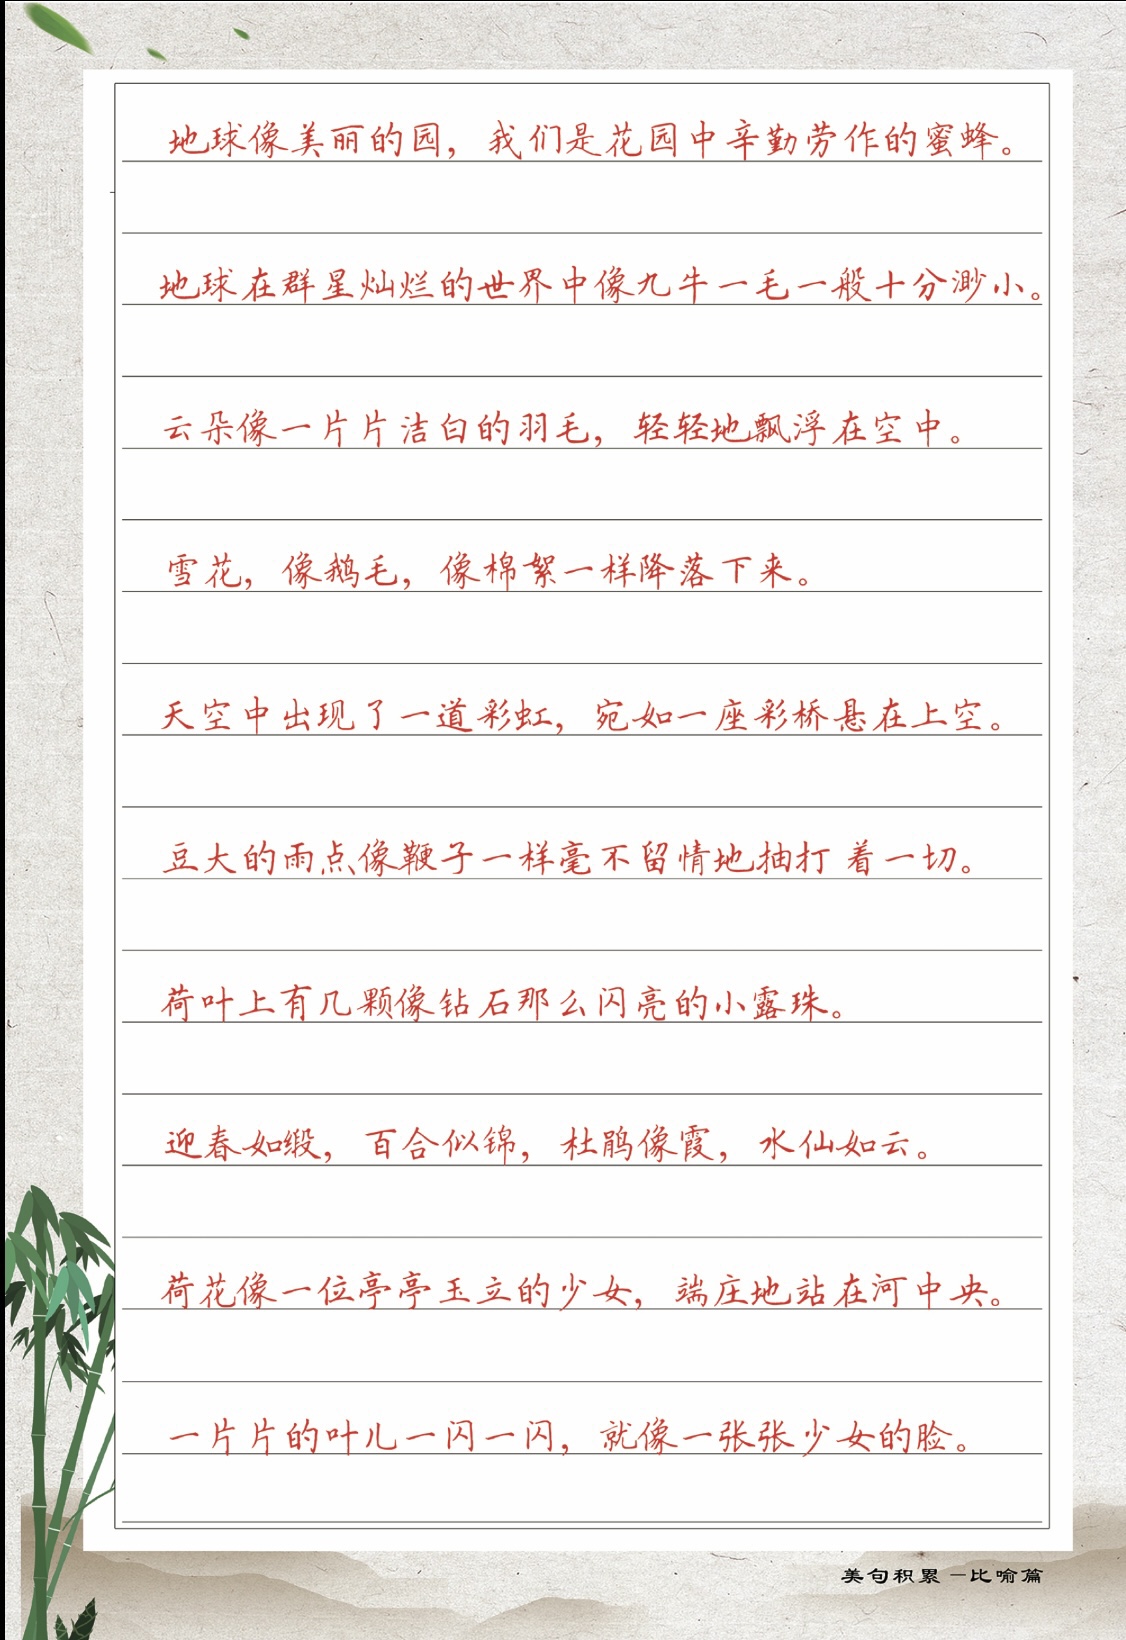 地球像美丽的园，我们是花园中辛勤劳作的蜜蜂。
地球在群星灿烂的世界中像九牛一毛一般十分渺小。
云朵像一片片洁白的羽毛，轻轻地飘浮在空中。
雪花，像鹅毛，像棉絮一样降落下来。
天空中出现了一道彩虹，宛如一座彩桥悬在上空。
豆大的雨点像鞭子一样毫不留情地抽打着一切。
荷叶上有几颗像钻石那么闪亮的小露珠。
迎春如缎，百合似锦，杜鹃像霞，水仙如云。
荷花像一位亭亭玉立的少女，端庄地站在河中央。
一片片的叶儿一闪一闪，就像一张张少女的脸。
美句积累一比喻篇